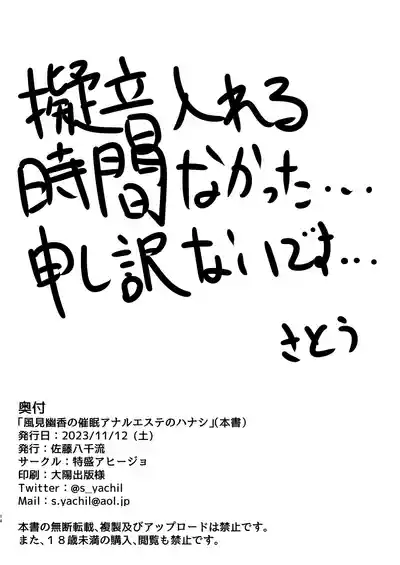 擬音入れる
時間なかった...
申し訳ないです...
さとう
奥付
「風見幽香の催眠アナルエステのハナシ」(本書)
発行日：2023/11/12 (土)
発行：佐藤八千流
サークル：特盛アヒージョ
印刷：大陽出版様
Twitter：@s_yachil
Mail：s.yachil@aol.jp
本書の無断転載、複製及びアップロードは禁止です。
また、１８歳未満の購入、閲覧も禁止です。